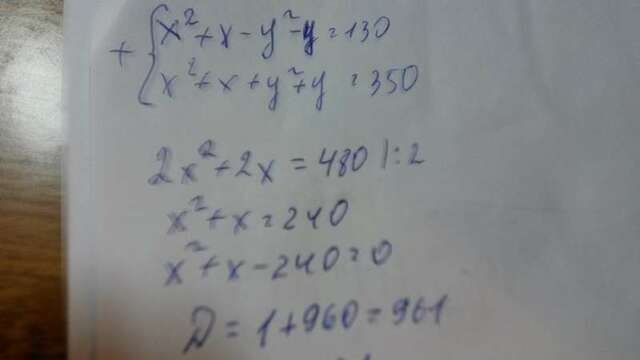 + { x² + x - y² - y = 130
x² + x + y² + y = 350
2x² + 2x = 480 |: 2
x² + x = 240
x² + x - 240 = 0
D = 1 + 960 = 961